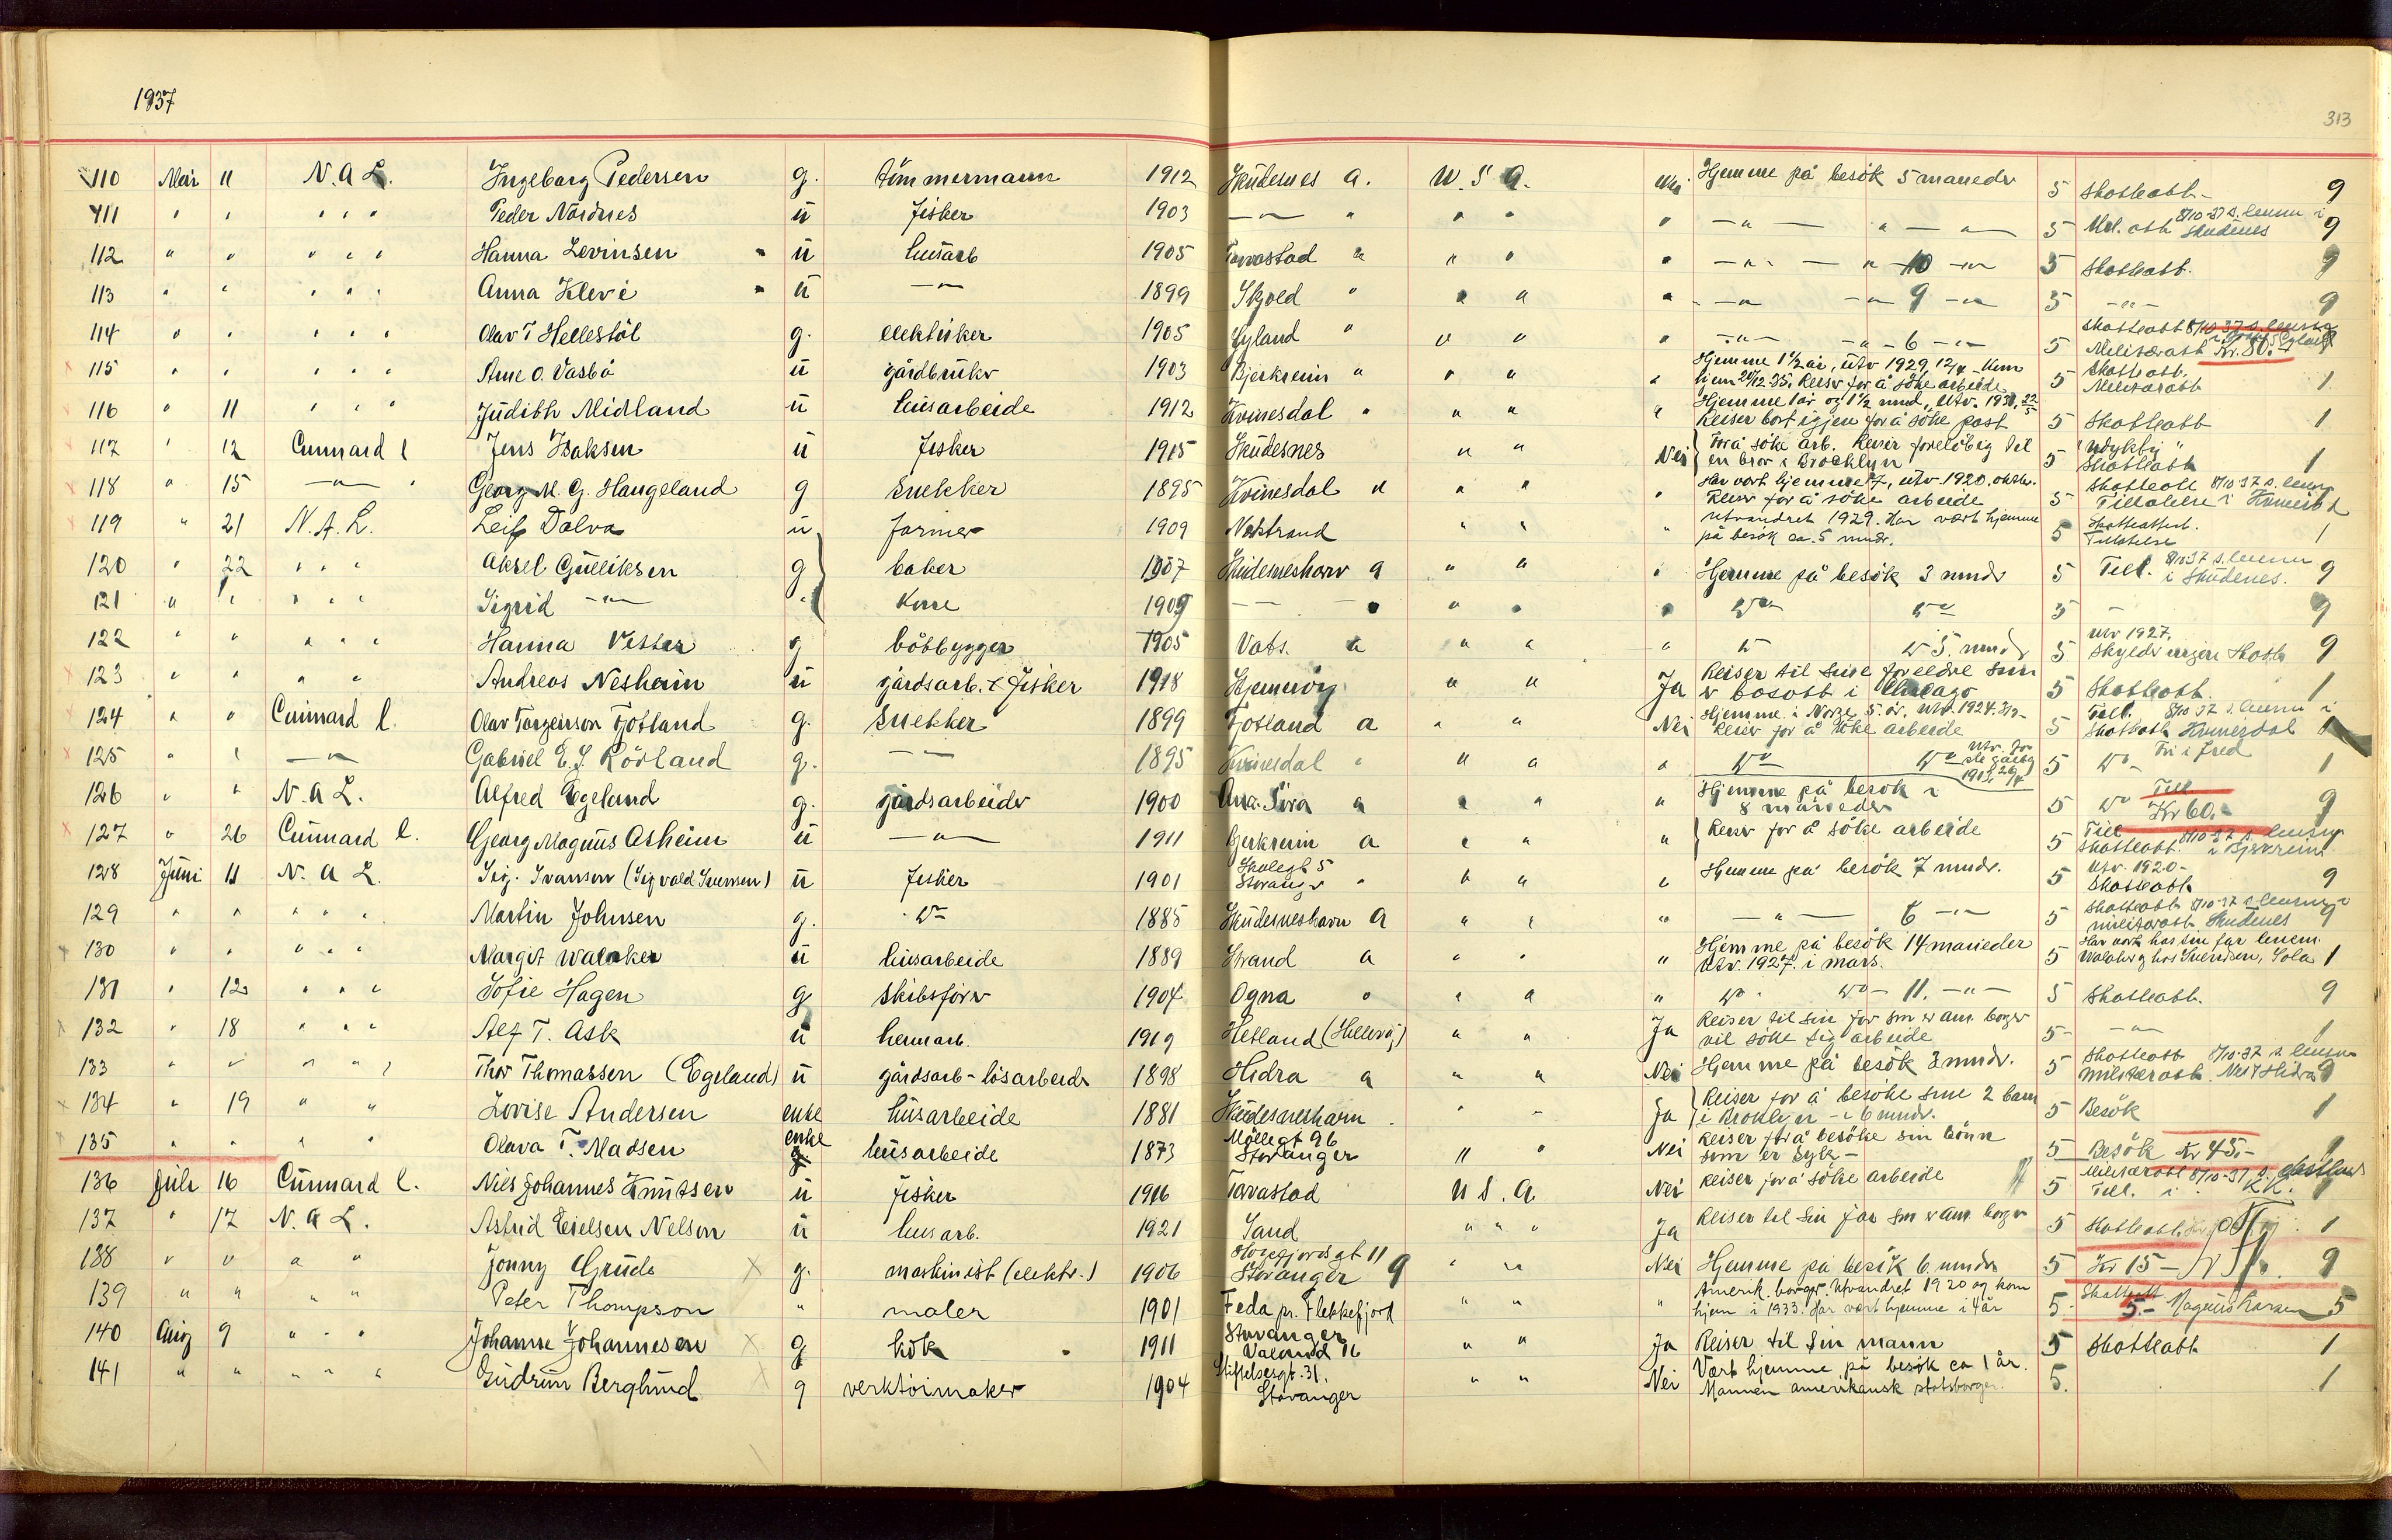 1937
313
110 Mai 11 N. A L. Ingeborg Pedersen g. tömmermann 1912 Skudesnes a. U. S A. Nei Hjemme på besök 5 maaneder 5 Skatteatt. 9
111 " " " " " Peder Nordnes u fisker 1903 — " — " " " " — " — " — " — 5 Mil. att 8/10-37 s. lensm i Skudenes 9
112 " " " " " Hanna Levinsen u husarb 1905 Tarvastad " " " " — " — " 10 — " — 5 Skatteatt. 9
113 " " " " " Anna Klevi u — " — 1899 Skjold " " " " — " — " 9 — " — 5 — " — 9
114 " " " " " Olav T Hellestöl g. elektriker 1905 Hyland " " " " — " — " — 6 — " — 5 Skatteatt 8/10 37 s. lensm Militæratt Kr. 80.-
115 " " " " " Arne O. Vasbö u gårdbruker 1903 Bjerkreim " " " " Hjemme 1½ år, utv 1929, 12/4 - Kom hjem 20/12 35. Reiser for å söke arbeide 5 Skatteatt. Militæratt 1
116 " 11 " " " Judith Midland u husarbeide 1912 Kvinesdal " " " " Hjemme 1 år og 1½ mnd, Utv. 1930, 22/5 Reiser bort igjen for å söke post 5 Skatteatt 1
117 " 12 Cunnard l Jens Isaksen u fisker 1915 Skudesnes " " Nei for å söke arb. Reiser foreløbig til en bror i Brooklyn 5 Skatteatt 1
118 " 15 — " — Georg M. G. Haugeland g snekker 1895 Kvinesdal " " " " Har vært hjemme, utv. 1920. Reiser for å söke arbeide 5 Skatteatt 8/10 37 s. lensm Tillatelse i 1
119 " 21 N. A. L. Leif Dalva u farmer 1909 Nerstrand " " " Utvandret 1929. Har vært hjemme på besök ca. 5 mndr. 5 Skatteattest. Tillatelse 1
120 " 22 " " " Aksel Gulliksen g baker 1907 Skudesneshavn a " " " Hjemme på besök 3 mndr 5 Till. 8/10 37 s. lensm i Skudenes. 9
121 " " " " " Sigrid — " — " Kone 1909 — — " " " " Do Do 5 — 9
122 " " " " " Hanna Vestar g båtbygger 1905 Vats. a " " " Do Do 5. mnd 5 Utv 1927. Skylder ingen Skatt 9
123 " " " " Andreas Nesheim u gårdsarb. & fisker 1918 " " Ja Reiser til sine foreldre som er bosatt i Chicago 5 Skatteatt. 1
124 " " Cunnard l. Olav Torgeirson Fjotland g. snekker 1899 Fjotland a " " Nei Hjemme i Norge 5. år. Utv. 1924. Reiser for å söke arbeide 5 Till. 8/10 37 s. lensm i Skatteatt Kvinesdal 1
125 " " — " — Gabriel E. J. Rörland g. — " — 1895 Kvinesdal " " " " Do Do Utv. 5 Do Fri i fred 1
126 " " N. A L. Alfred Egeland g. gårdsarbeider 1900 Ana. Sira a " " " Hjemme på besök i 8 måneder 5 Do Till Kr 60.- 9
127 " 26 Cunnard l. Georg Magnus Asheim u — " — 1911 Bjerkreim a " " " Reiser for å söke arbeide 5 Till 8/10-37 s. lensm Skatteatt. i Bjerkreim
128 Juni 11 N. A L. Sig. Ivanson (Sigvald Svensen) u fisker 1901 Skolegt 5 Stavanger " " " " Hjemme på besök 7 mndr. 5 Utv. 1920 - Skatteatt 9
129 " " " " " Martin Johnsen g. Do 1885 Skudesneshavn a " " " — " — 6 — " — 5 Skatteatt 8/10-37 s. lensm i militæratt. Skudenes 9
130 " " " " " Margit Walaker u husarbeide 1889 Strand a " " " Hjemme på besök 14 maneder Utv. 1927 i mars. 5 Har vært hos sin far lensm. Walaker og hos Svendsen, Sola 1
131 " 12 " " " Sofie Hagen g skibsförer 1904 Ogna " " " " Do Do — 11. — " — 5 Skatteatt. 9
132 " 18 " " " Alf T. Ask u hermarb. 1919 Hetland (Hillevåg) " " Ja Reiser til sin far som er am. borger vil söke sig arbeide 5 — " — 1
133 " " " " " Thor Thomassen (Egeland) u gårdsarb - lösarbeider 1898 Hidra a " " Nei Hjemme på besök 3 mndr. 5 Skatteatt 8/10-37 s. lensm militæratt. Nes & Hidra 9
134 " 19 " " Lovise Andersen enke husarbeide 1881 Skudesneshavn " " Ja Reiser for å besöke sine 2 barn i Broklyn - i 6 mndr. 5 Besök 1
135 " " " " Olava T. Madsen enke husarbeide 1873 Möllegt 96 Stavanger " " Nei Reiser for å besöke sin sönn som er syk - 5 Besök Kr 45.- 1
136 Juli 16 Cunnard l. Nils Johannes Knutsen u fisker 1916 Tarvastad U S. A. Nei Reiser for å söke arbeide 5 Militæratt 8/10-37 s. Till. i
137 " 17 N. A L. Astrid Eielsen Nelson u husarb. 1921 Sand " " " Ja Reiser til sin far som er am. borger 5 Skatteatt. 1
138 " " " " Jonny Grude g. maskinist (elektr.) 1906 Stavanger 9 " " Nei Hjemme på besök 6 mndr 5 Kr 15 - 9
139 " " " " Peter Thompson " maler 1901 Feda pr. Flekkefjord " " " Amerik. borger. Utvandret 1920 og kom hjem i 1933. Har vært hjemme i 4 år 5. Skatteatt 5.- Magnus Larsen 5
140 Aug 9 " " " Johanne Johannesen g kok 1911 Stavanger " " Ja Reiser til sin mann 5 Skatteatt 1
141 " " " " " Gudrun Berglund g verktöimaker 1904 Stiftelsesgt. 31. Stavanger " " Nei Vært hjemme på besök ca 1 år. Mannen amerikansk statsborger. 5. 1